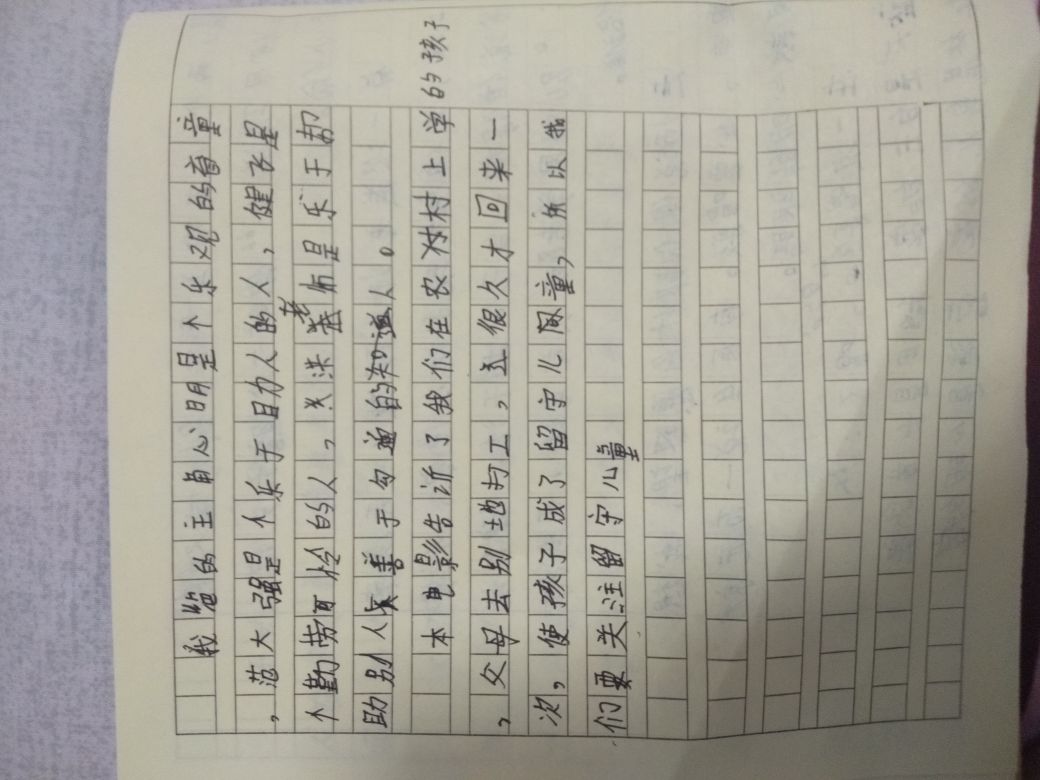 我觉的主角心明是个乐观的盲童
，范大强是个乐于助人的人，健子是
个勤劳可怜的人，关洪老师是乐于帮
助别人善于勾通的人。
本电影告诉了我们在农村上学的孩子
，父母去别地打工，很久才回来一
次，使孩子成了留守儿童，所以我
们要关注留守儿童